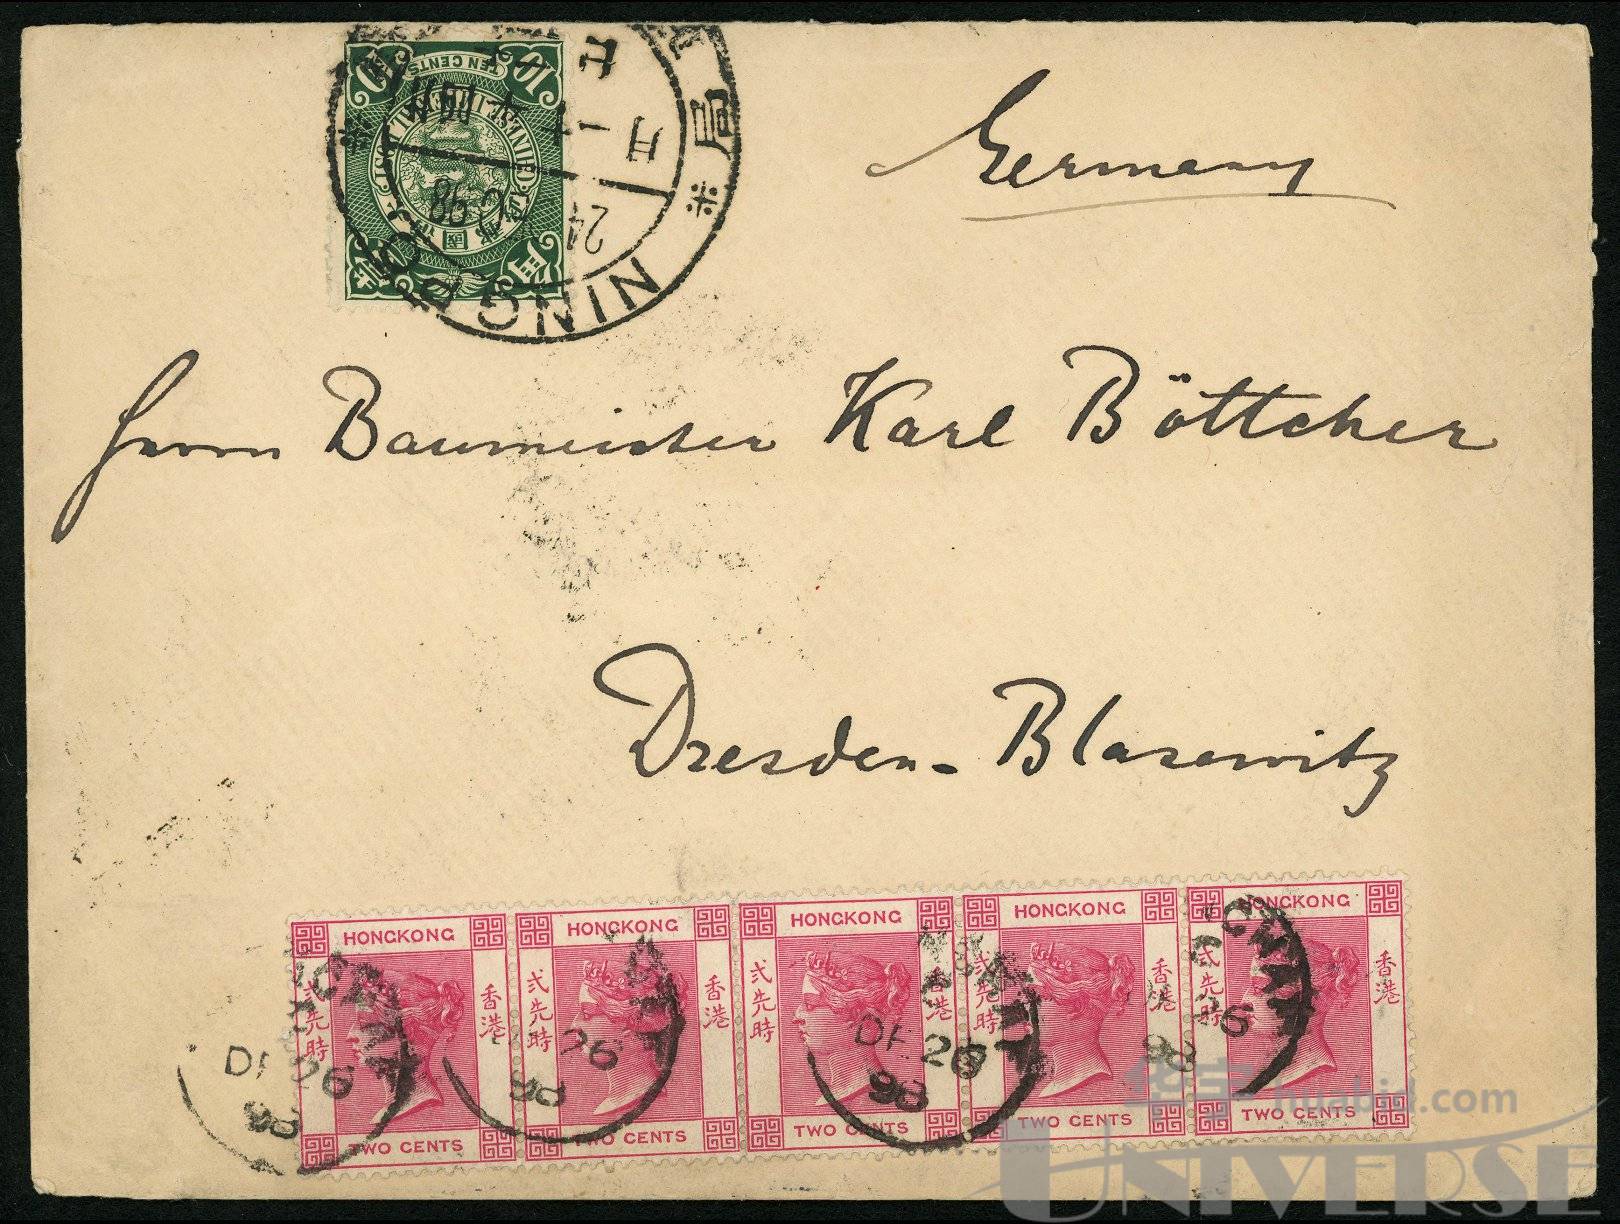 Germany
10 TEN CENTS 10
CHINESE IMPERIAL POST
局
月
一
24
DEC
98
NINGPO
Herrn Baumeister Karl Böttcher
Dresden-Blasewitz
HONGKONG HONGKONG HONGKONG HONGKONG HONGKONG
弍先時 香港 弍先時 香港 弍先時 香港 弍先時 香港 弍先時 香港
DE 26 26 DE 26 26
98 98 98 98
TWO CENTS TWO CENTS TWO CENTS TWO CENTS TWO CENTS
华宇 huabid.com
UNIVERSE